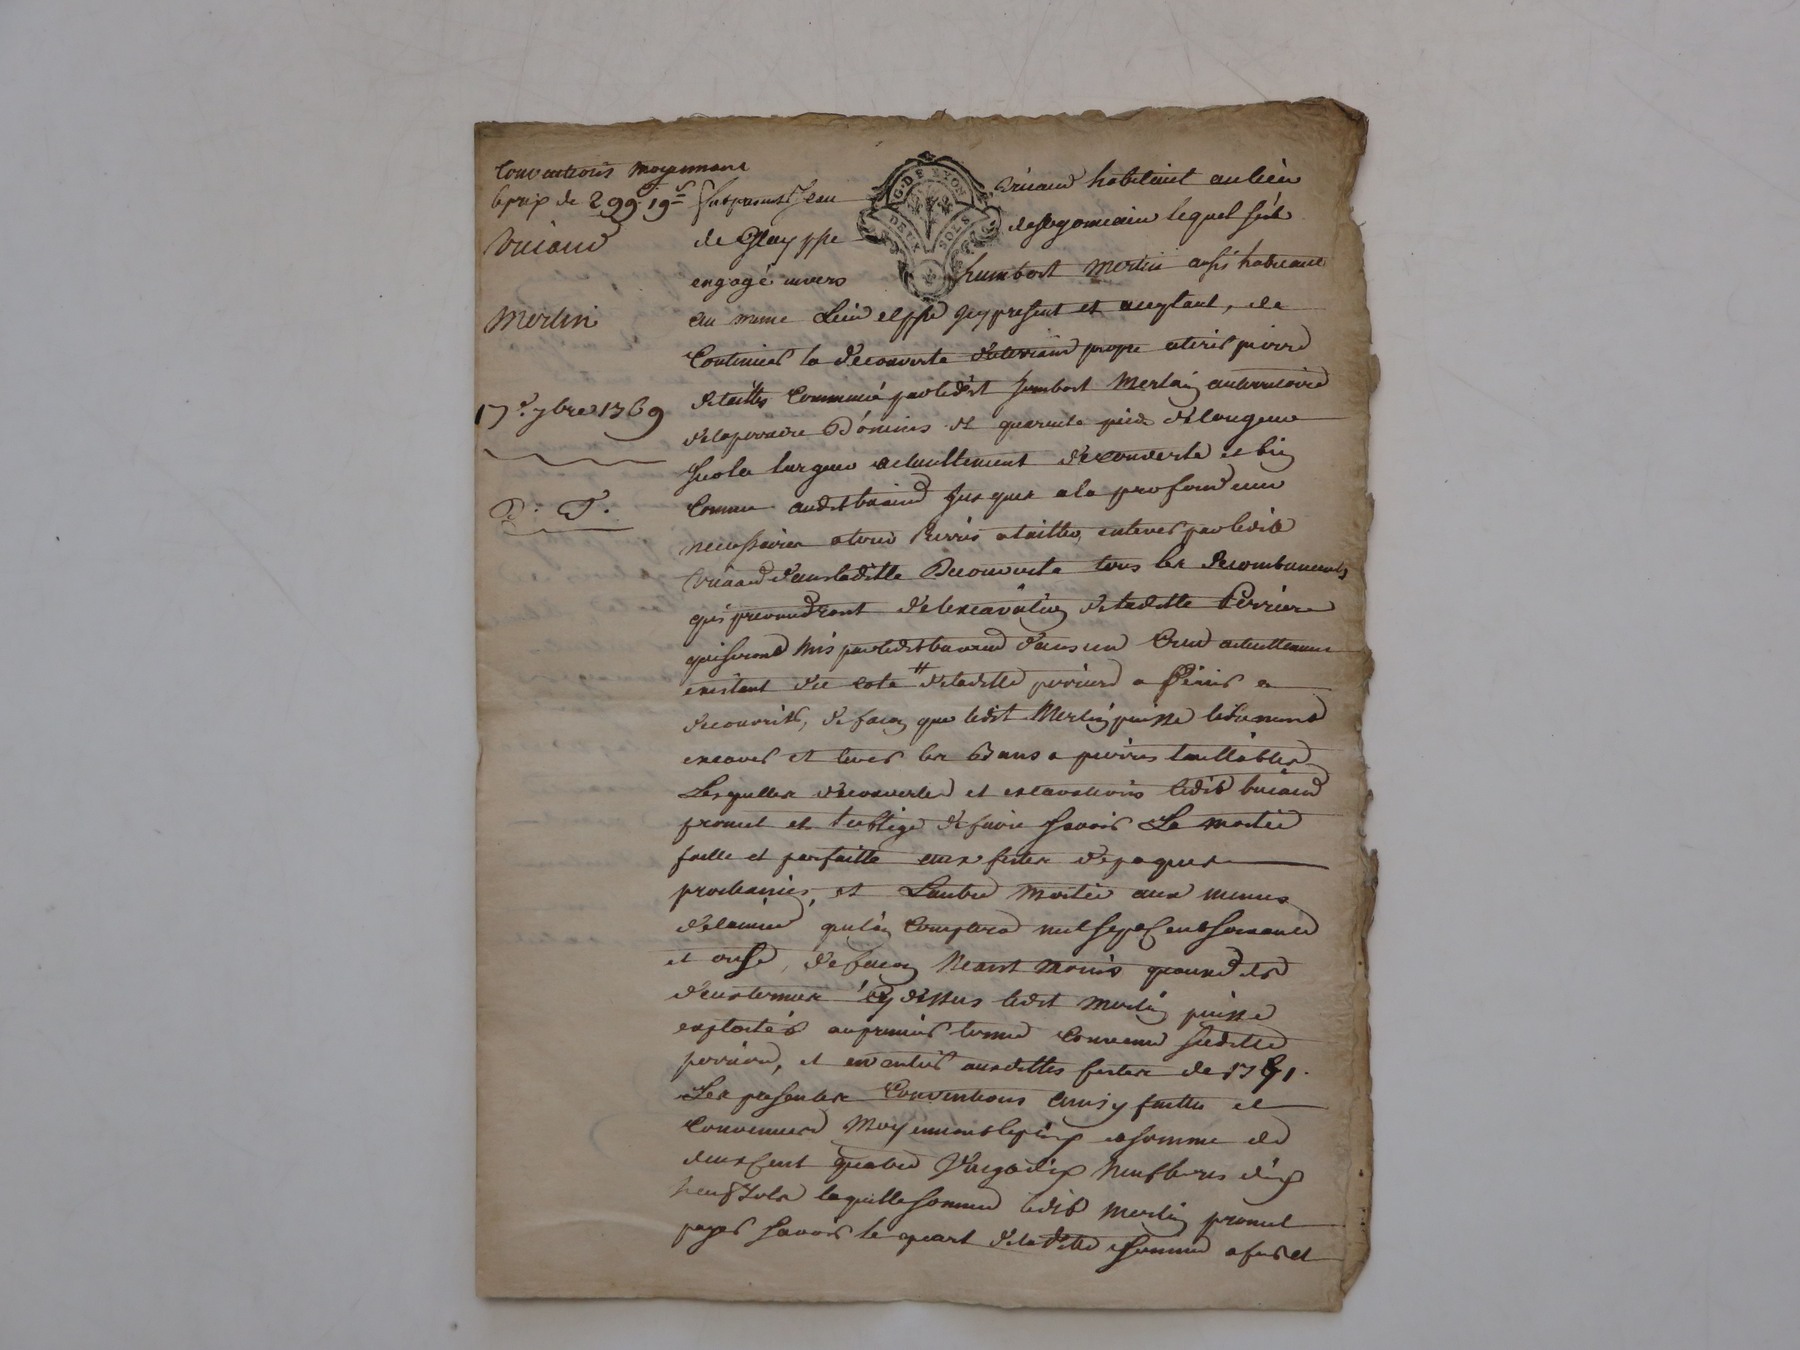 Conventions moyennant
le prix de 299 19s
Briand
Merlin
17e 7bre 1769
G. DE LYON
DEUX SOLS
fut present Jean Briand habitant au lieu
de lequel s'est
engagé envers humbert Merlin aussi habitant
au meme Lieu icy present et acceptant, de
Continuer la decouverte propre a tirer pierre
de taille Commencé par ledit humbert Merlin au territoire
de la perriere et quarente pieds de longueur
sur la largeur actuellement decouverte et bien
Connue audit briand jusques a la profondeur
necessaire a tirer Pierres a tailler, enlever par ledit
briand dans laditte Decouverte tous les decombrements
qui proviendront de l'excavation de laditte Perriere
qui seront mis par ledit briand dans un actuellement
existant du coté de laditte perriere a
decouvrir, de facon que ledit Merlin puisse
excaver et lever les Bancs a pierres taillables
Lesquelles decouvertes et excavations ledit briand
promet et s'oblige de faire savoir La moitié
faitte et parfaitte aux festes de paques
prochaines, et L'autre moitié aux memes
de l'année qu'on Comptera mil sept cent soixante
et onse, de facon Neant moins
termes cy dessus ledit Merlin puisse
exploiter au premier terme Convenu laditte
perriere, et en entier auxdittes festes de 1771.
Les presentes Conventions ainsy faittes et
Convenues Moyennant le prix et somme de
deux cent quatre Vingt dix Neuf livres dix
neuf sols laquelle somme ledit Merlin promet
payer savoir le quart de laditte somme